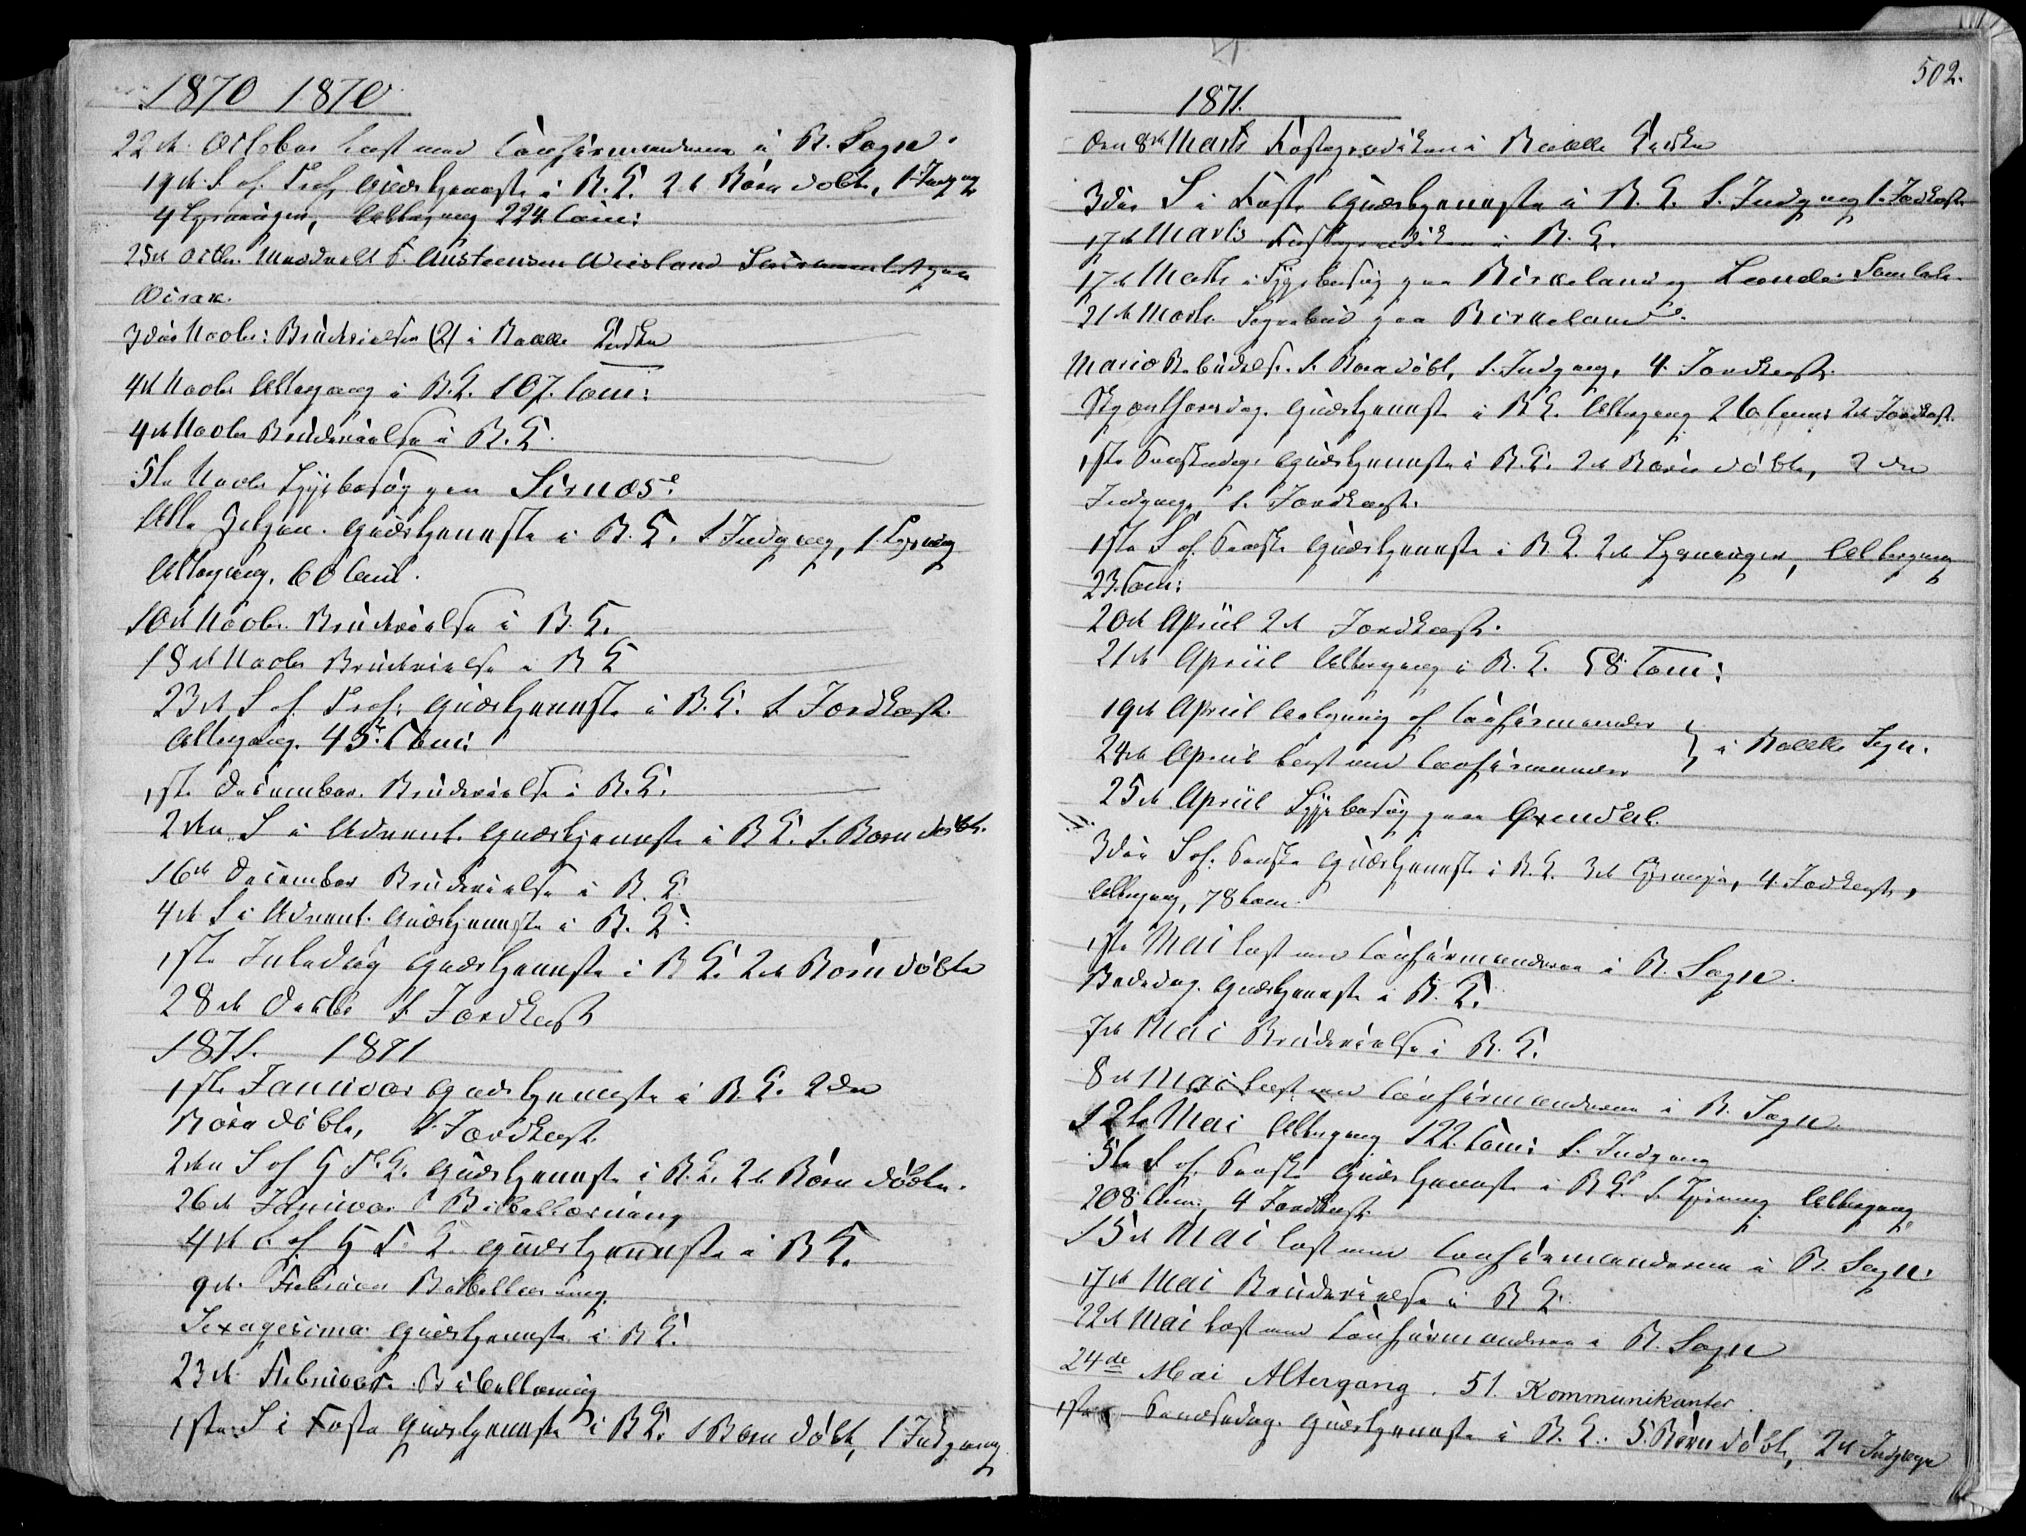 1870 1870
22de October læst med Confirmanderne i B. Sogn.
19de S. ef. Tref. Gudstjeneste i B. K. 2de Børn døbte, 1 Indgang
4 Lysninger, Altergang 224 Com:
25de Octbr. meddeelt
3die Novbr: Brudevielser (2) i Bakke Kirke
4de Novbr Altergang i B. K. 107. Com:
4de Novbr Brudevielse i B. K.
5te Novbr Sygebesøg paa Sirnæs.
Alle Helgen. Gudstjeneste i B. K. 1 Indgang, 1 Lysning
Altergang. 60 Com.
10de Novbr. Brudevielse i B. K.
18de Novbr Brudevielse i B K
23de S ef. Tref. Gudstjeneste i B. K. 1 Jordkast.
Altergang. 45 Com:
1ste December. Brudevielse i B. K.
2den S i Advent. Gudstjeneste i B K. 1. Barn døbt.
16de December Brudevielse i B. K.
4de S i Advent. Gudstjeneste i B. K.
1ste Juledag Gudstjeneste i B K. 2de Børn døbte
28de Decbr 1. Jordkast
1871. 1871
1ste Januar Gudstjeneste i B K. 2den
Børn døbte, 1. Jordkast.
2den S ef H. 3. K. Gudstjeneste i B. K. 2de Børn døbte.
26de Januar Bibellæsning
4de S. ef H 3. K. Gudstjeneste i B K.
9de Februar Bibellæsning.
Sexagesima Gudstjeneste i B K.
23de Februar. Bibellæsning
1ste S i Faste Gudstjeneste i B K. 1 Barn døbt, 1 Indgang.
502.
1871.
Den 8de Marts Fasteprædiken i Bakke Kirke
3die S i Faste Gudstjeneste i B. K. 1. Indgang 1. Jordkast.
17de Marts Fasteprædiken i B. K.
17de Marts i Sygebesøg paa Birkeland og
21de Marts Sognebud paa Birkeland.
Mariæ Bebudelse. 1. Barn døbt, 1. Indgang, 4. Jordkast.
Skjærthorsdag. Gudstjeneste i B K. Altergang 26 Com: 2de Jordkast.
1ste Paaskedag. Gudstjeneste i B. K. 2de Børn døbte, 2den
Indgange, 1. Jordkast.
1ste S. ef. Paaske Gudstjeneste i B K. 2de Lysninger, Altergang
23. Com:
20de April 2de Jordkast.
21de April Altergang i B. K. 58 Com:
19de April Antegning af Confirmander
24de April læst med Confirmander } i Bakke Sogn.
25de April Sygebesøg paa Øxendal.
3die S ef. Paaske Gudstjeneste i B. K. 3de Lysninger, 4. Jordkast,
Altergang, 78 Com.
1ste Mai læst med Confirmanderne i B. Sogn.
Bededag. Gudstjeneste i B. K.
7de Mai Brudevielse i B. K.
8de Mai læst med Confirmanderne i B. Sogn
12te Mai Altergang 122 Com: 1. Indgang
5te S. ef. Paaske Gudstjeneste i B K. 1. Lysning Altergang
208. Com: 4 Jordkast.
15de Mai læst med Confirmanderne i B. Sogn.
17de Mai Brudevielse i B K.
22de Mai læst med Confirmanderne i B. Sogn
24de Mai Altergang. 51. Kommunikanter.
1ste Pindsedag. Gudstjeneste i B. K. 5. Børn døbt, 2de Indgange